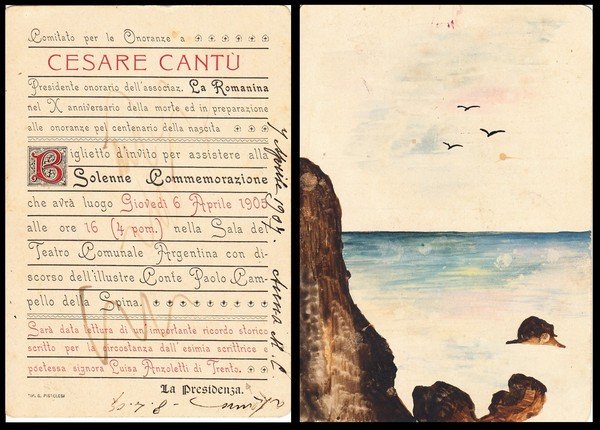 Comitato per le Onoranze a
CESARE CANTÙ
Presidente onorario dell'associaz. La Romanina
nel X anniversario della morte ed in preparazione
alle onoranze pel centenario della nascita
Biglietto d'invito per assistere alla
Solenne Commemorazione
che avrà luogo Giovedì 6 Aprile 1905
alle ore 16 (4 pom.) nella Sala del
Teatro Comunale Argentina con di-
scorso dell'illustre Conte Paolo Cam-
pello della Spina.
Sarà data lettura di un importante ricordo storico
scritto per la circostanza dall'esimia scrittrice e
poetessa signora Luisa Anzoletti di Trento.
La Presidenza.
TIP. G. PISTOLESI
Aprile 1907.